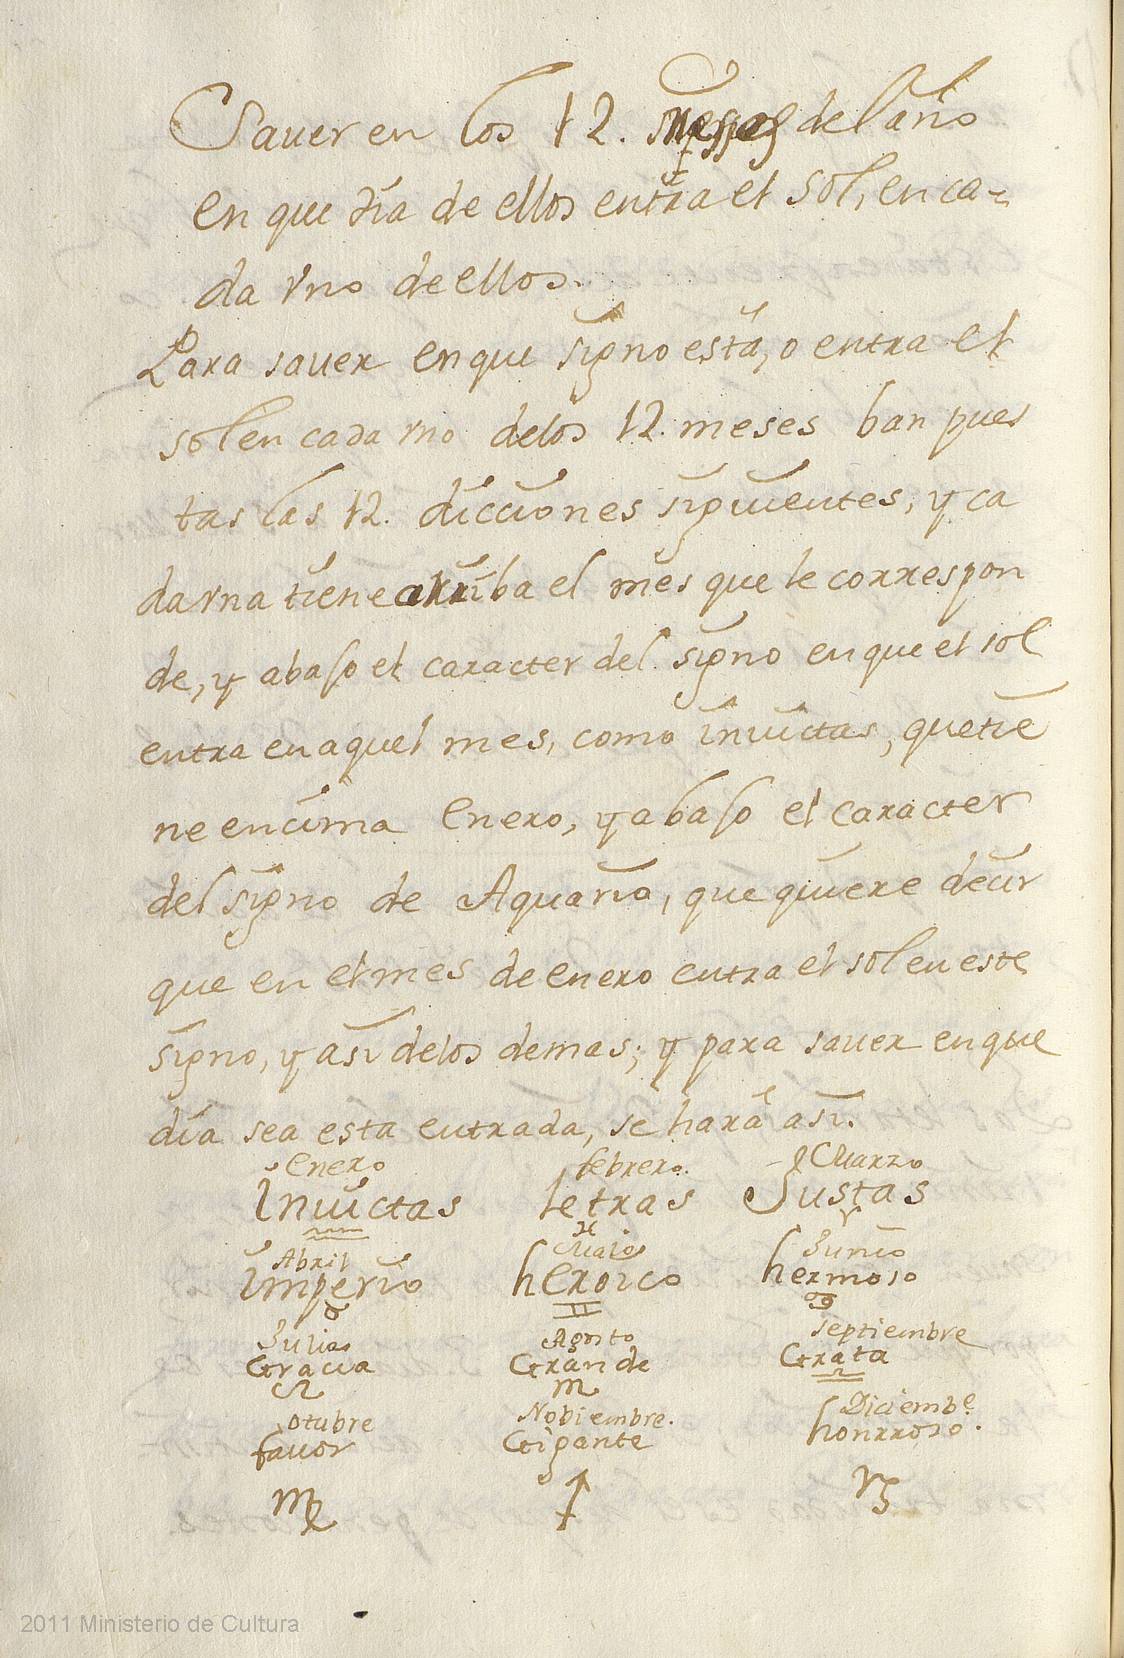 Sauer en los 12. messes del año
en que dia de ellos entra el sol, en ca-
da vno de ellos.
Para sauer en que signo está, o entra el
sol en cada vno delos 12. meses ban pues
tas las 12. dicciones siguientes, y ca
da vna tiene arriba el mes que le correspon
de, y abaso el caracter del signo en que el sol
entra en aquel mes, como invictas, que tie
ne encima Enero, y abaso el caracter
del signo de Aquario, que quiere decir
que en el mes de enero entra el sol en este
signo, y asi delos demas; y para sauer en que
dia sea esta entrada, se hará asi.
Enero febrero. Marzo
Invictas letras Justas
♒ ♓ ♈
Abril Maio Junio
imperio heroico hermoso
♉ ♊ ♋
Julio Agosto septiembre
Gracia Grande Grata
♌ ♍ ♎
otubre Nobiembre. Diciembe
favor Gigante honrroso.
♏ ♐ ♑
2011 Ministerio de Cultura